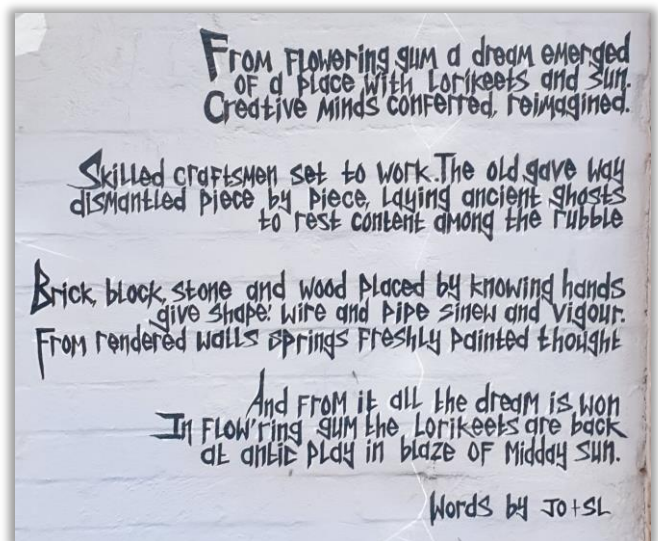 From flowering gum a dream emerged
of a place with Lorikeets and sun.
Creative minds conferred, reimagined.
Skilled craftsmen set to work. The old gave way
dismantled piece by piece, laying ancient ghosts
to rest content among the rubble
Brick, block, stone and wood placed by knowing hands
give shape: wire and pipe sinew and vigour.
From rendered walls springs freshly painted thought
And from it all the dream is won
In flow'ring gum the Lorikeets are back
at antic play in blaze of midday sun.
Words by JO+SL